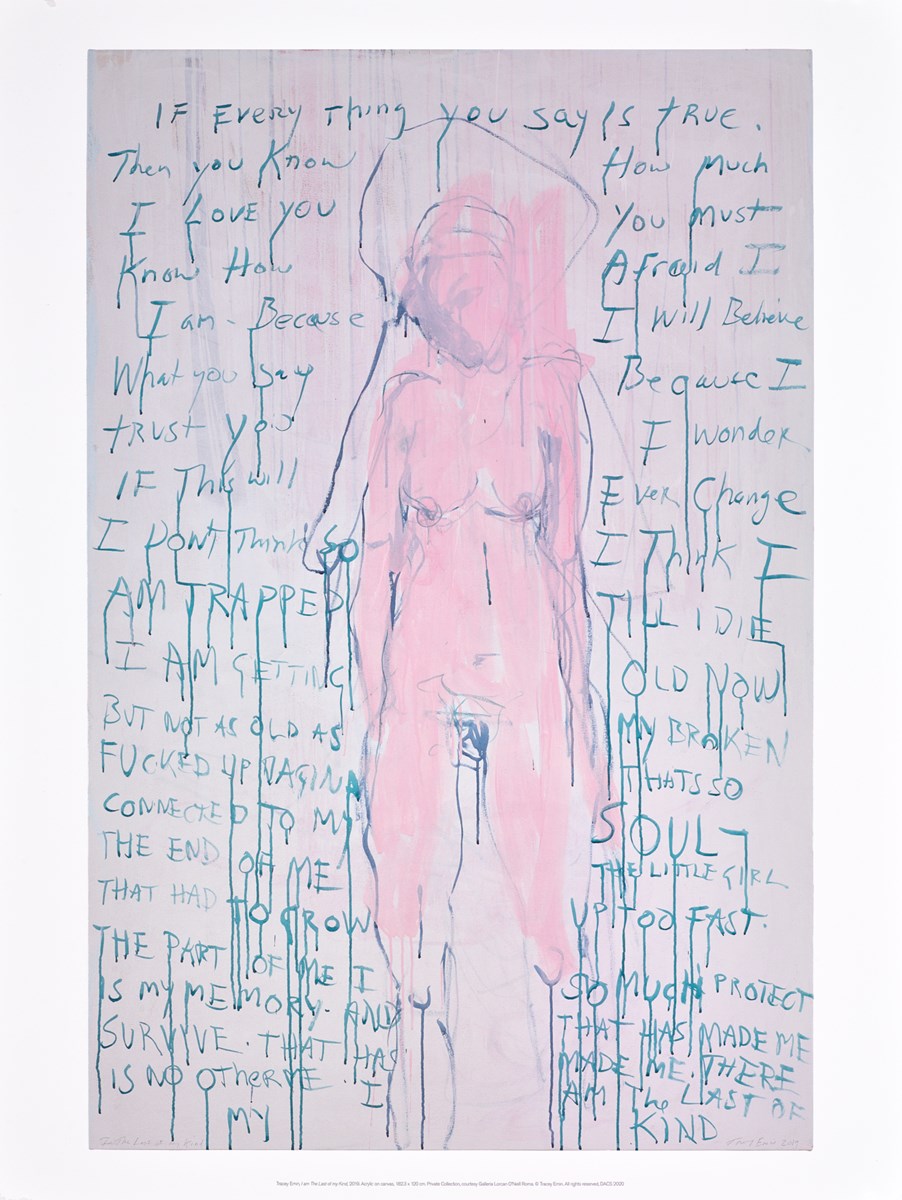 IF Every Thing you say Is true.
Then you Know How much
I Love you You must
Know How Afraid I
I am - Because I Will Believe
What you say Because I
trust you I wonder
IF This will Ever Change
I Dont Think SO I Think I
AM TRAPPED TILL I DIE
I AM GETTING OLD NOW
BUT NOT AS OLD AS MY BROKEN
FUCKED UP VAGINA THATS SO
CONNECTED TO MY SOUL -
THE END OF ME THE LITTLE GIRL
THAT HAD TO GROW UP TOO FAST.
THE PART OF ME I SO MUCH PROTECT
IS MY MEMORY. AND THAT HAS MADE ME
SURVIVE. THAT HAS MADE ME. THERE
IS NO OTHER ME. I AM The LAST OF
MY KIND
Tracey Emin, I am The Last of my Kind, 2019. Acrylic on canvas, 182.3 x 120 cm. Private Collection, courtesy Galleria Lorcan O'Neill Roma. © Tracey Emin. All rights reserved, DACS 2020.